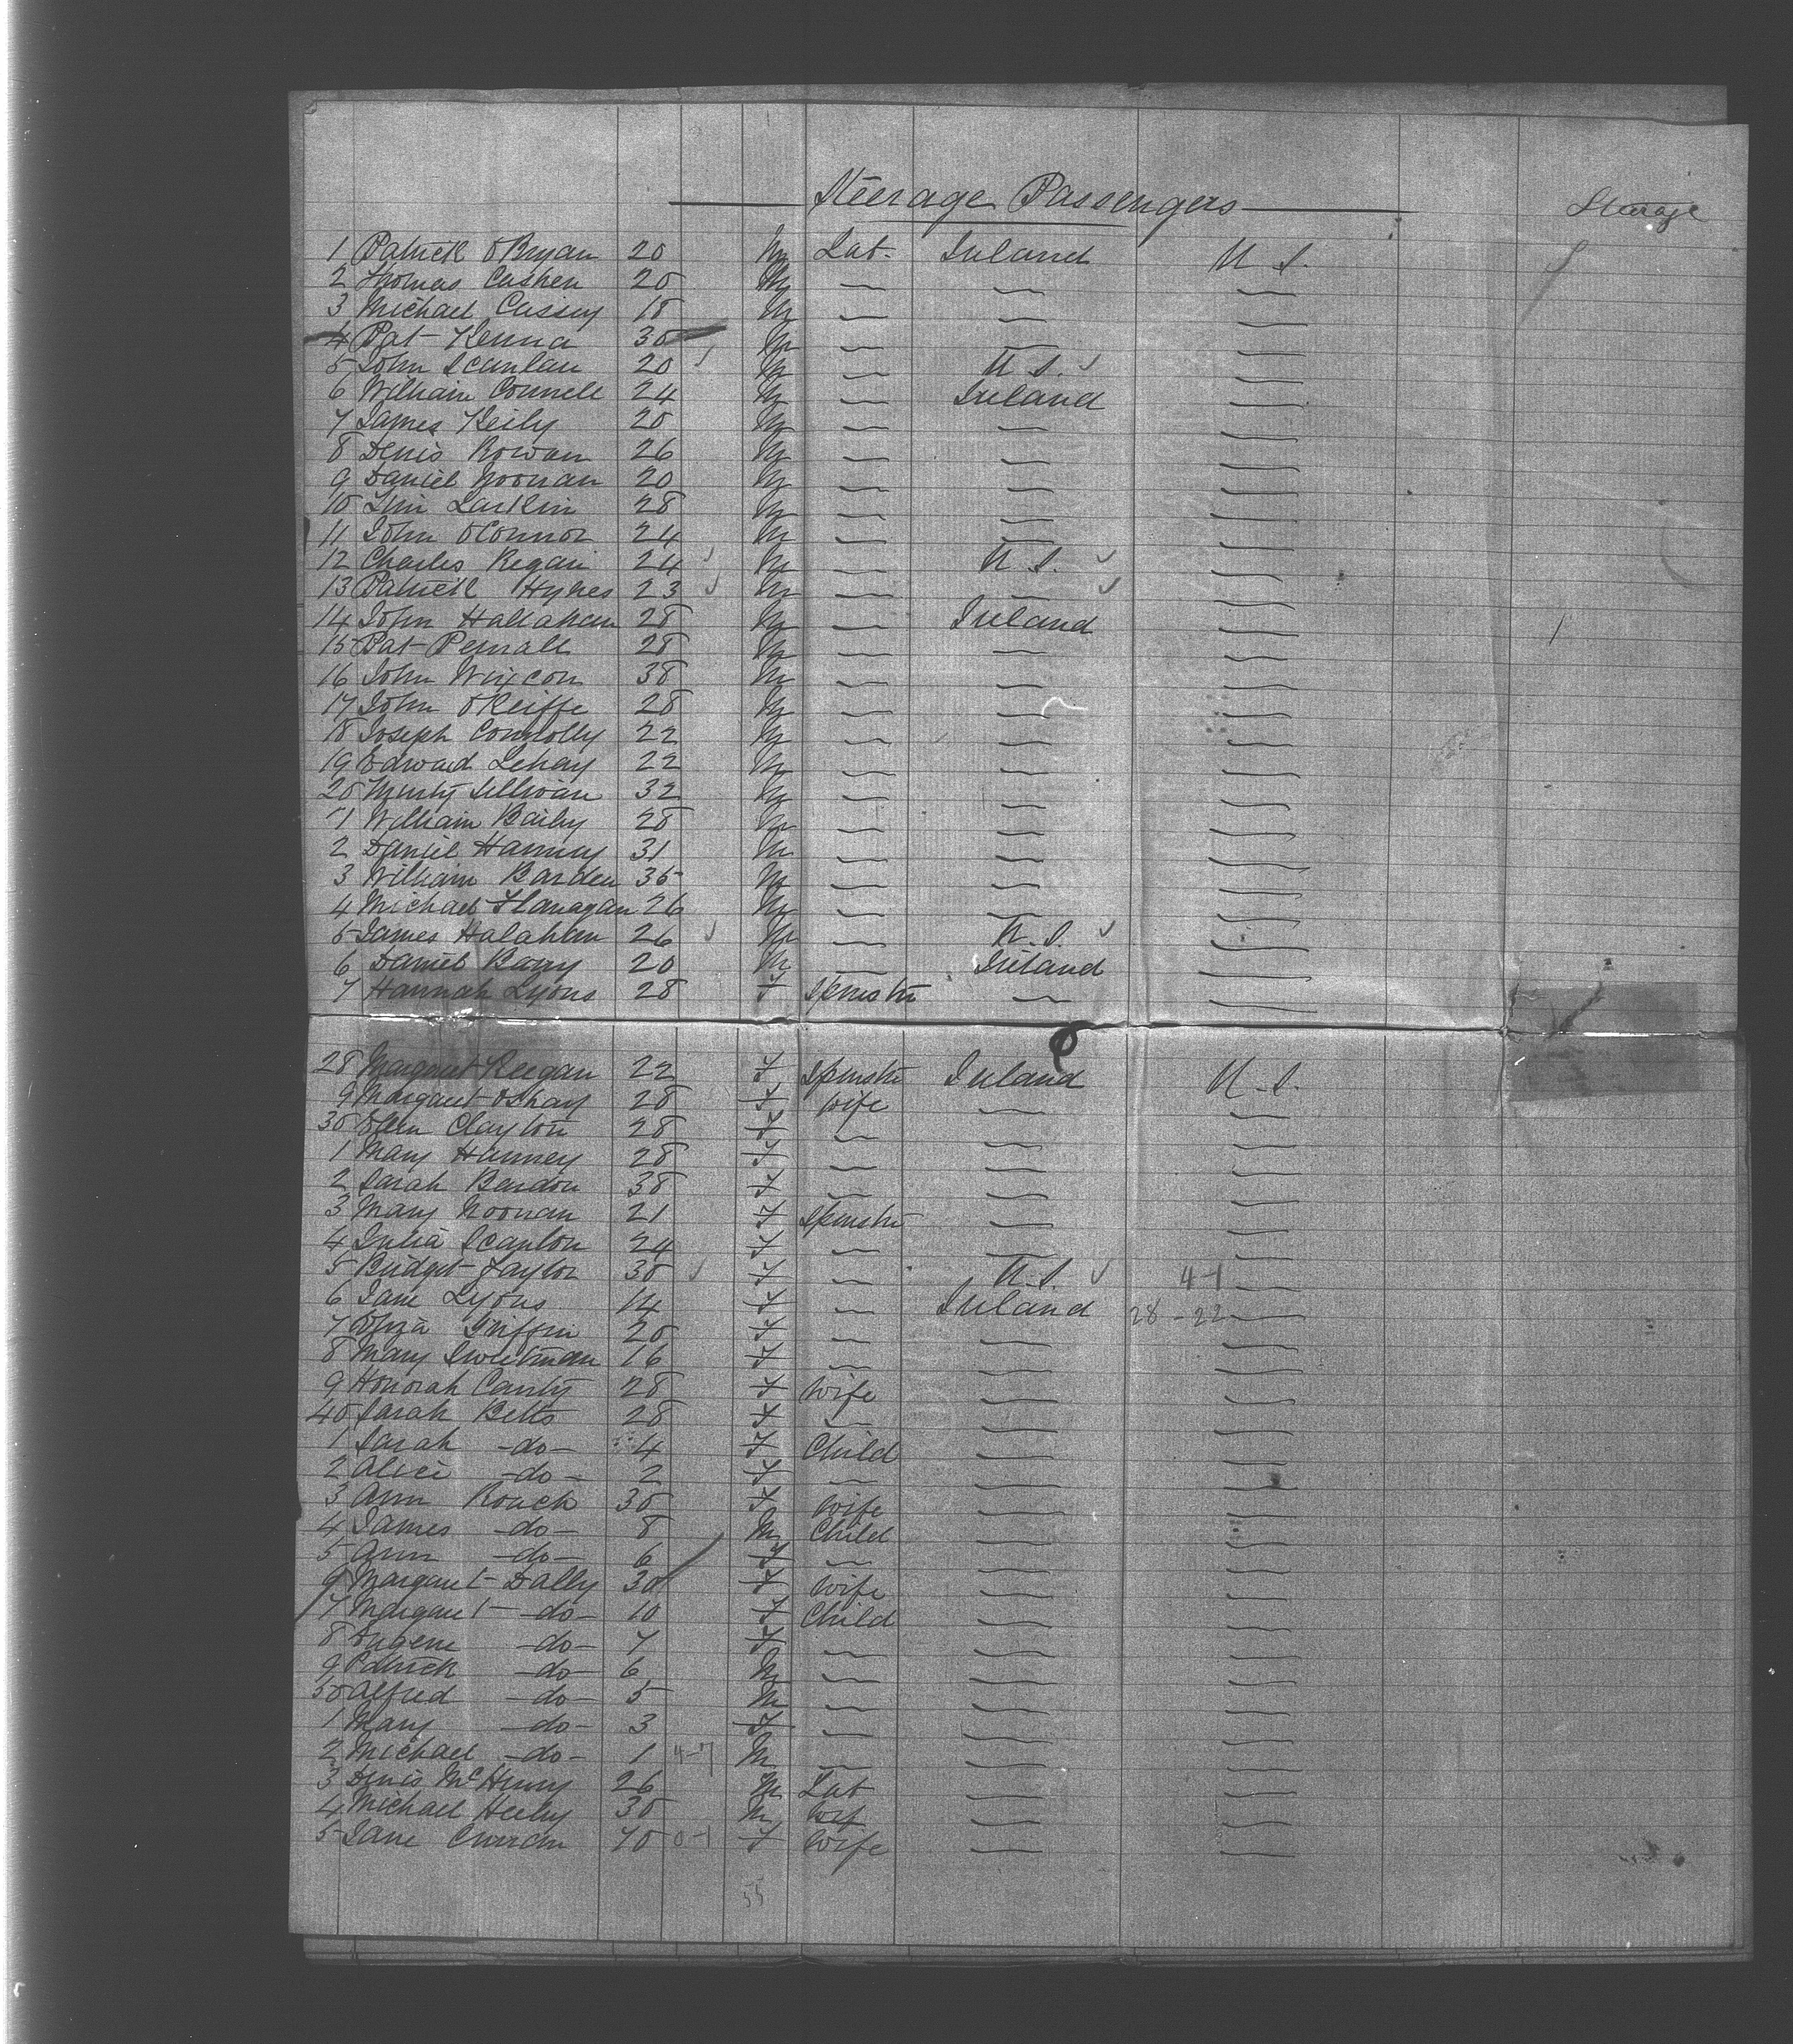 Steerage Passengers
Steerage
1 Patrick OBryan 20 M Lab. Ireland U S.
2 Thomas Cashen 20 M
3 Michael 18 M
4 Pat Kenna 30 M
5 John Scanlan 20 M U S.
6 William Connell 24 M Ireland
7 James Keily 20 M
8 Denis Rowan 26 M
9 Daniel Noonan 20 M
10 Tim Larkin 28 M
11 John OConnor 24 M
12 Charles Regan 24 M U S.
13 Patrick Hynes 23 M
14 John Hallahan 28 M Ireland
15 Pat 28 M
16 John 38 M
17 John OKeiffe 28 M
18 Joseph Connolly 22 M
19 Edward Lehay 22 M
20 Murty Sullivan 32 M
1 William Baily 28 M
2 Daniel Hanney 31 M
3 William Barden 35 M
4 Michael Flanagan 26 M
5 James Halahan 26 M U.S.
6 Daniel Barry 20 M Ireland
7 Hannah Lyons 28 F Spinstr
28 Margaret Keegan 22 F Spinstr Ireland U S.
9 Margaret 28 F Wife
30 Ellen Clayton 28 F
1 Mary Hanney 28 F
2 Sarah Bardon 38 F
3 Mary Noonan 21 F Spinstr
4 Julia Scanlon 24 F
5 Bridget Taylor 30 F U.S. 4-1
6 Jane Lyons 14 F Ireland 28-22
7 Eliza Griffin 20 F
8 Mary Sweetman 16 F
9 Honorah Canty 28 F Wife
40 Sarah Betts 28 F
1 Sarah -do- 4 F Child
2 Alice -do- 2 F
3 Ann Roach 30 F Wife
4 James -do- 8 M Child
5 Ann -do- 6 F
6 Margaret Dally 30 F Wife
7 Margaret -do- 10 F Child
8 Eugene -do- 7 F
9 Patrick -do- 6 M
50 Alfred -do- 5 M
1 Mary -do- 3 F
2 Michael -do- 1 4-7 M
3 Denis McHenry 26 M Lab
4 Michael Heeley 30 M
5 Jane Curran 70 0-1 F Wife
55